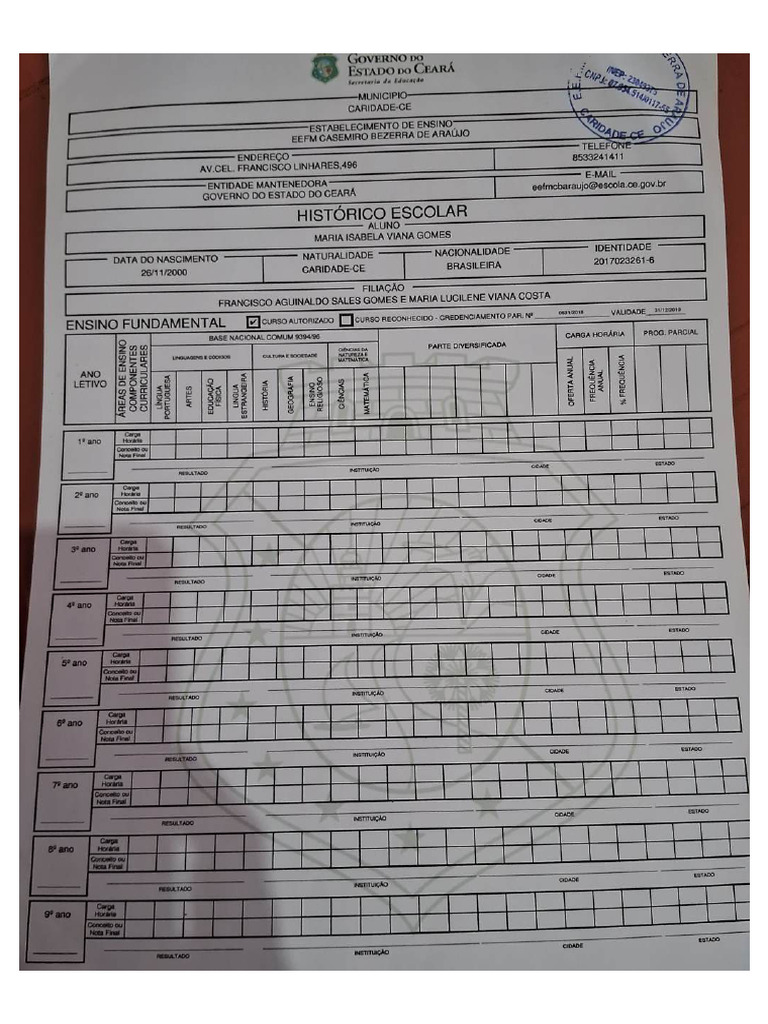 GOVERNO DO
ESTADO DO CEARÁ
Secretaria da Educação
MUNICIPIO
CARIDADE-CE
ESTABELECIMENTO DE ENSINO
EEFM CASEMIRO BEZERRA DE ARAÚJO
ENDEREÇO
AV.CEL. FRANCISCO LINHARES,496
TELEFONE
8533241411
ENTIDADE MANTENEDORA
GOVERNO DO ESTADO DO CEARÁ
E-MAIL
eefmcbaraujo@escola.ce.gov.br
CARIDADE-CE
HISTÓRICO ESCOLAR
ALUNO
MARIA ISABELA VIANA GOMES
DATA DO NASCIMENTO
26/11/2000
NATURALIDADE
CARIDADE-CE
NACIONALIDADE
BRASILEIRA
IDENTIDADE
2017023261-6
FILIAÇÃO
FRANCISCO AGUINALDO SALES GOMES E MARIA LUCILENE VIANA COSTA
ENSINO FUNDAMENTAL CURSO AUTORIZADO CURSO RECONHECIDO - CREDENCIAMENTO PAR. Nº VALIDADE 31/12/2019
ANO LETIVO
ÁREAS DE ENSINO COMPONENTES CURRICULARES
BASE NACIONAL COMUM 9394/96
LINGUAGENS E CÓDIGOS
CULTURA E SOCIEDADE
CIÊNCIAS DA NATUREZA E MATEMÁTICA
PARTE DIVERSIFICADA
CARGA HORÁRIA
PROG. PARCIAL
LÍNGUA PORTUGUESA
ARTES
EDUCAÇÃO FÍSICA
LÍNGUA ESTRANGEIRA
HISTÓRIA
GEOGRAFIA
ENSINO RELIGIOSO
CIÊNCIAS
MATEMÁTICA
OFERTA ANUAL
FREQUÊNCIA ANUAL
% FREQUÊNCIA
1º ano
Carga Horária
Conceito ou Nota Final
RESULTADO INSTITUIÇÃO CIDADE ESTADO
2º ano
Carga Horária
Conceito ou Nota Final
RESULTADO INSTITUIÇÃO CIDADE ESTADO
3º ano
Carga Horária
Conceito ou Nota Final
RESULTADO INSTITUIÇÃO CIDADE ESTADO
4º ano
Carga Horária
Conceito ou Nota Final
RESULTADO INSTITUIÇÃO CIDADE ESTADO
5º ano
Carga Horária
Conceito ou Nota Final
RESULTADO INSTITUIÇÃO CIDADE ESTADO
6º ano
Carga Horária
Conceito ou Nota Final
RESULTADO INSTITUIÇÃO CIDADE ESTADO
7º ano
Carga Horária
Conceito ou Nota Final
RESULTADO INSTITUIÇÃO CIDADE ESTADO
8º ano
Carga Horária
Conceito ou Nota Final
RESULTADO INSTITUIÇÃO CIDADE ESTADO
9º ano
Carga Horária
Conceito ou Nota Final
RESULTADO INSTITUIÇÃO CIDADE ESTADO